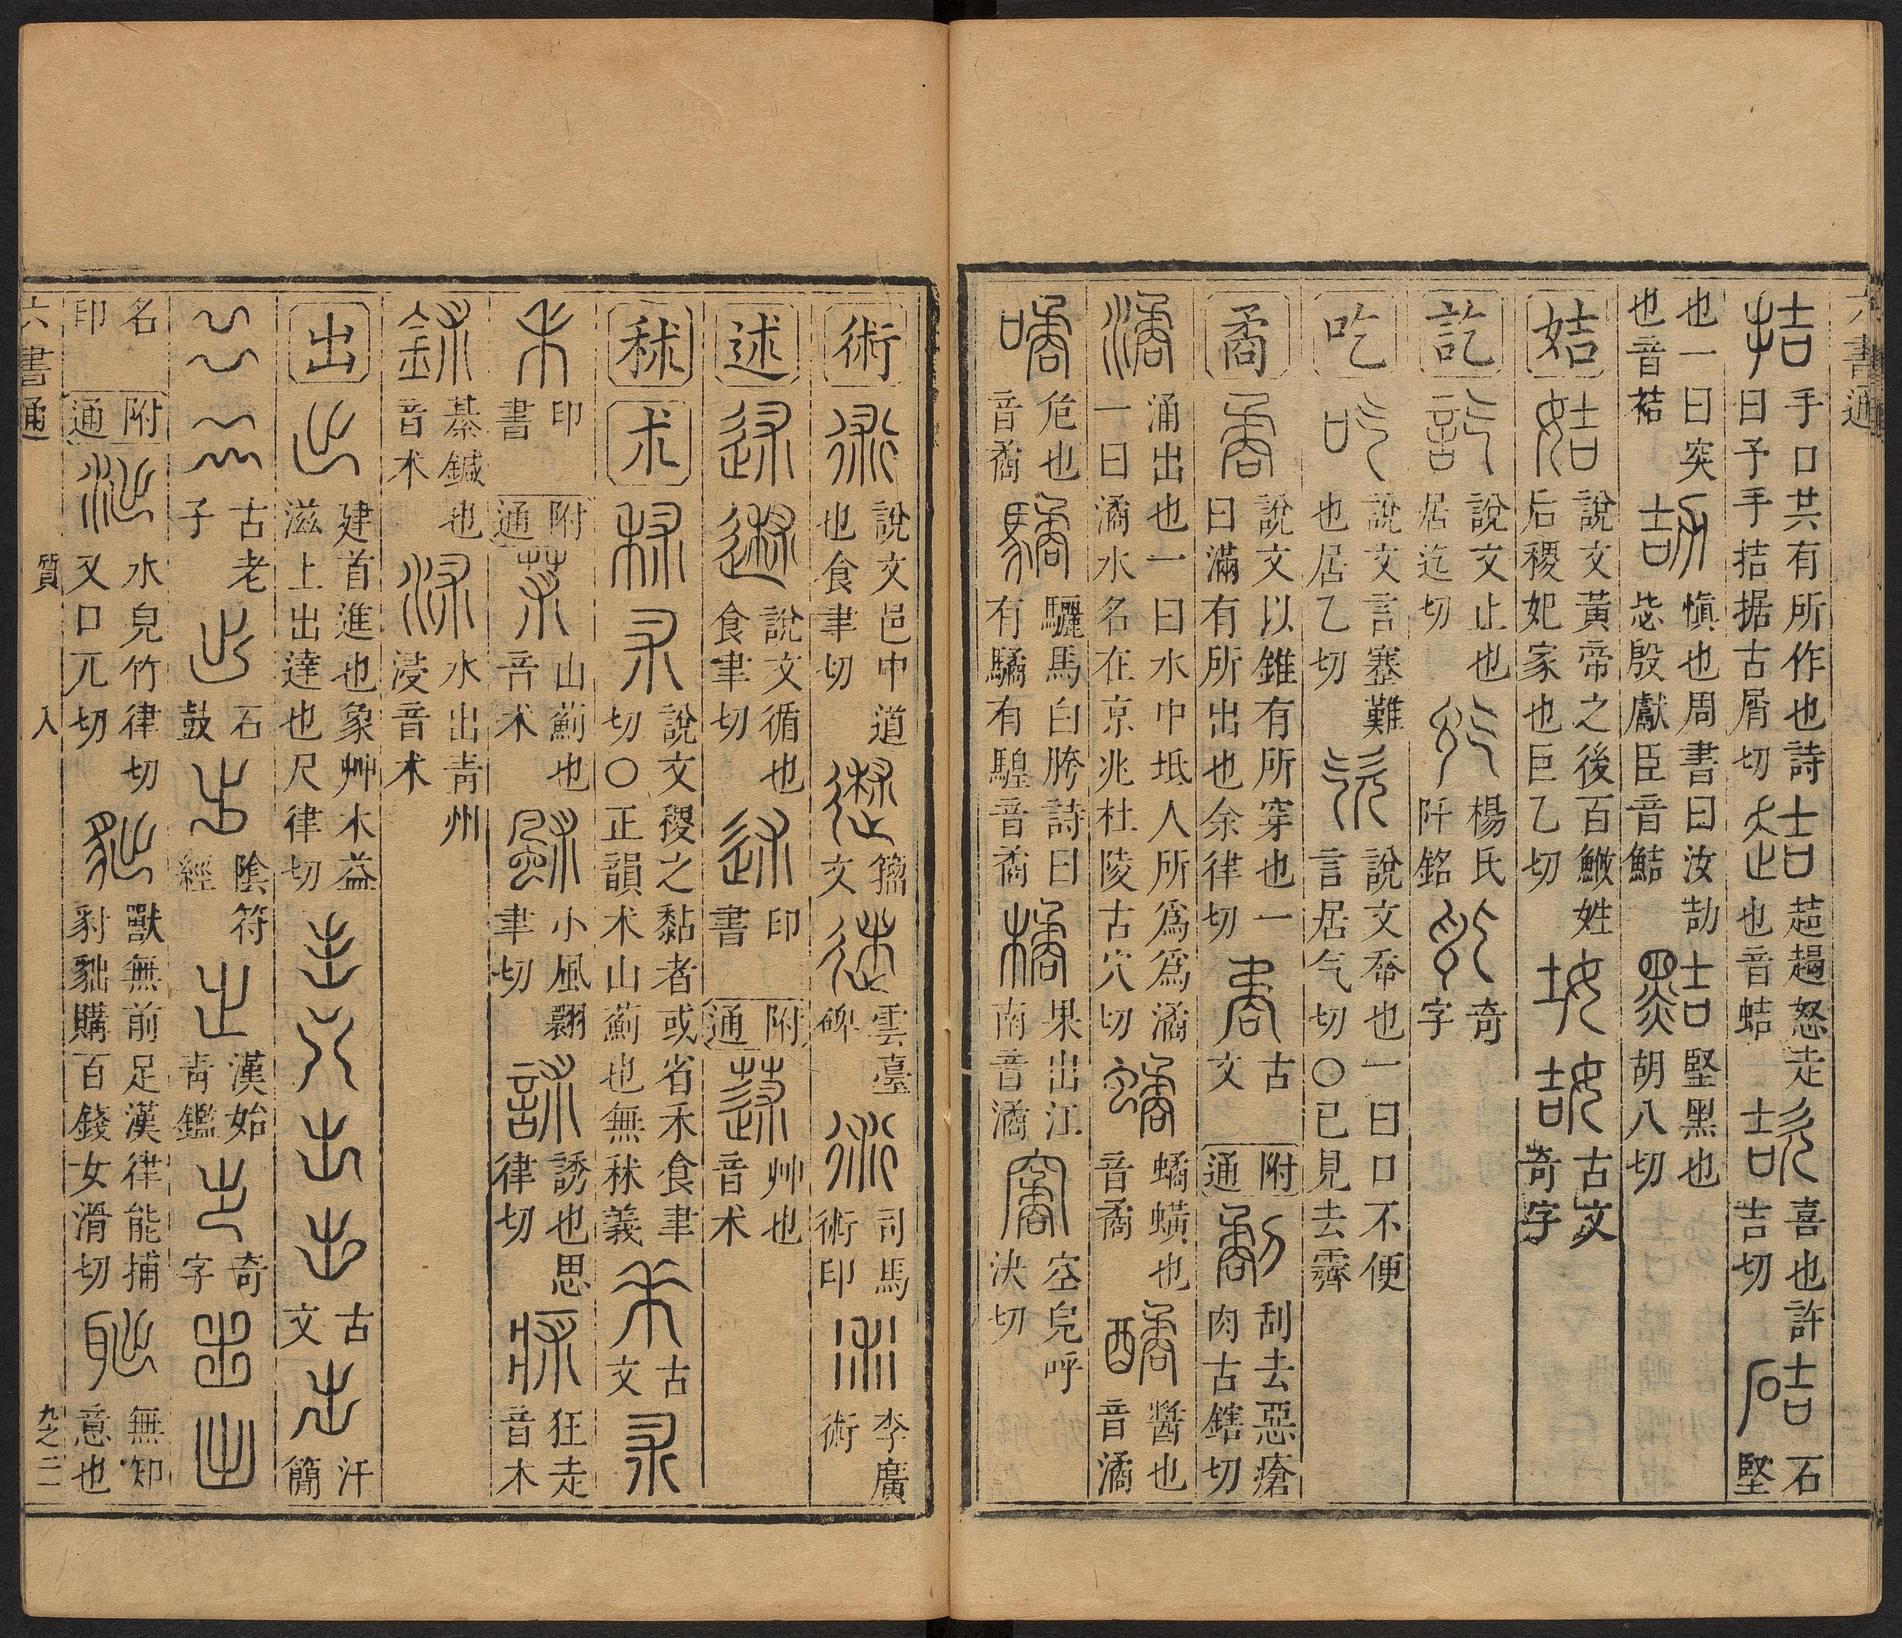 六書通
拮 手口共有所作也詩曰予手拮据古屑切 趌 趌趨怒走也音蛣 欯 喜也許吉切 硈 石堅
也一曰突也音祮 誩 愼也周書曰汝劼毖殷獻臣音鮚 黠 堅黑也胡八切
姞 姞 說文黃帝之後百鮻姓后稷妃家也巨乙切 古文奇字
訖 訖 說文止也居迄切 楊氏阡銘 奇字
吃 吃 說文言蹇難也居乙切 說文㐬也一曰口不便言居气切〇已見去霽
矞 矞 說文以錐有所穿也一曰滿有所出也余律切 古文 附通 劀 刮去惡瘡肉古鎋切
潏 涌出也一曰水中坻人所爲爲潏一曰潏水名在京兆杜陵古穴切 蟜蟥也音矞 醬也音潏
噊 危也音矞 驈 驪馬白胯詩曰有驈有騜音矞 橘 果出江南音潏 窩 空皃呼決切
術 術 說文邑中道也食聿切 籀文 雲臺碑 司馬術印 李廣術
述 述 說文循也食聿切 印書 附通 蒁 艸也音术
秫 术 說文稷之黏者或省禾食聿切〇正韻术山薊也無秫義 古文
印書 附通 山薊也音术 小風翾聿切 訹 誘也思律切 狂走音术
鉥 綦鍼也音术 沭 水出靑州浸音术
出 出 建首進也象艸木益滋上出達也尺律切 古文 汗簡
古老子 石鼓 陰符經 漢始靑鑑 奇字
名印 附通 泏 水皃竹律切又口兀切 貀 獸無前足漢律能捕豺貀購百錢女滑切 聉 無知意也
六書通 質 入 九之二